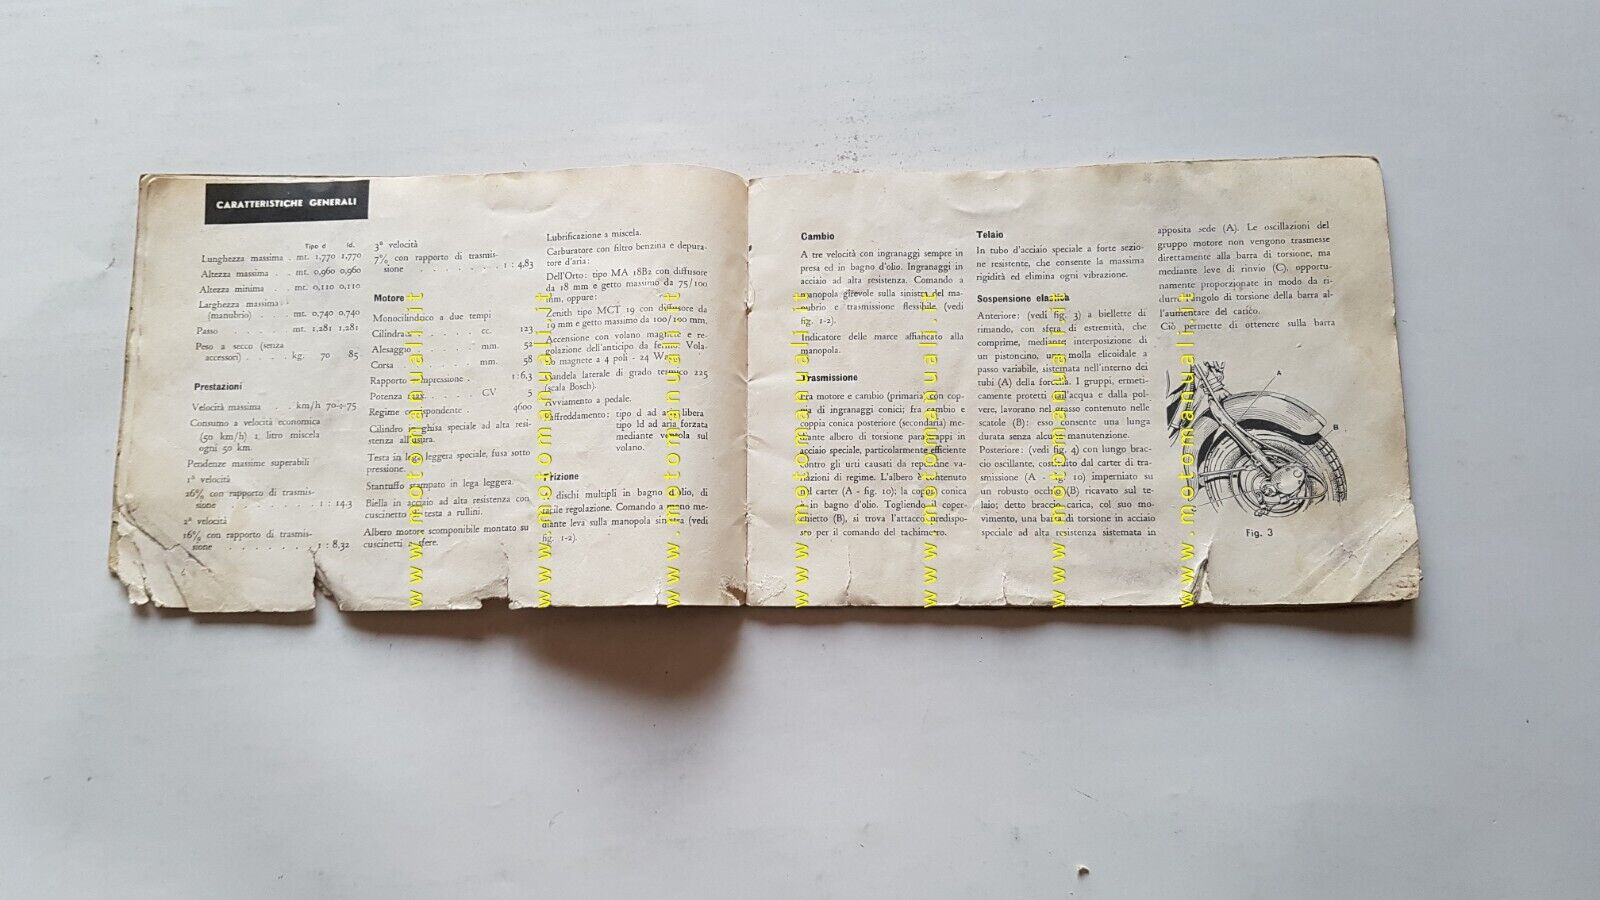 CARATTERISTICHE GENERALI
Tipo d ld.
Lunghezza massima . mt. 1,770 1,770
Altezza massima . . mt. 0,960 0,960
Altezza minima . . mt. 0,110 0,110
Larghezza massima
(manubrio) . . . . mt. 0,740 0,740
Passo . . . . . mt. 1,281 1,281
Peso a secco (senza
accessori) . . . . kg. 70 85
Prestazioni
Velocità massima . . km/h 70÷75
Consumo a velocità economica
(50 km/h) 1 litro miscela
ogni 50 km.
Pendenze massime superabili
1ª velocità
26% con rapporto di trasmis-
sione . . . . . . . 1 : 14,3
2ª velocità
16% con rapporto di trasmis-
sione . . . . . . . . 1 : 8,32
3ª velocità
7% con rapporto di trasmis-
sione . . . . . . . . 1 : 4,83
Motore
Monocilindrico a due tempi
Cilindrata . . . . . cc. 123
Alesaggio . . . . . mm. 52
Corsa . . . . . . mm. 58
Rapporto compressione . 1:6,3
Potenza max. . . . . CV 5
Regime corrispondente . 4600
Cilindro in ghisa speciale ad alta resi-
stenza all'usura.
Testa in lega leggera speciale, fusa sotto
pressione.
Stantuffo stampato in lega leggera.
Biella in acciaio ad alta resistenza con
cuscinetto di testa a rullini.
Albero motore scomponibile montato su
cuscinetti a sfere.
Lubrificazione a miscela.
Carburatore con filtro benzina e depura-
tore d'aria:
Dell'Orto: tipo MA 18B2 con diffusore
da 18 mm e getto massimo da 75/100
mm, oppure:
Zenith tipo MCT 19 con diffusore da
19 mm e getto massimo da 100/100 mm.
Accensione con volano magnete e re-
golazione dell'anticipo da fermo. Vola-
no magnete a 4 poli - 24 W
Candela laterale di grado termico 225
(scala Bosch).
Avviamento a pedale.
Raffreddamento: tipo d ad aria libera
tipo ld ad aria forzata
mediante ventola sul
volano.
Frizione
A dischi multipli in bagno d'olio, di
facile regolazione. Comando a mono me-
diante leva sulla manopola sinistra (vedi
fig. 1-2).
Cambio
A tre velocità con ingranaggi sempre in
presa ed in bagno d'olio. Ingranaggi in
acciaio ad alta resistenza. Comando a
manopola girevole sulla sinistra del ma-
nubrio e trasmissione flessibile (vedi
fig. 1-2).
Indicatore delle marce affiancato alla
manopola.
Trasmissione
Fra motore e cambio (primaria) con cop-
pia di ingranaggi conici; fra cambio e
coppia conica posteriore (secondaria) me-
diante albero di torsione parastrappi in
acciaio speciale, particolarmente efficiente
contro gli urti causati da repentine va-
riazioni di regime. L'albero è contenuto
nel carter (A - fig. 10); la coppia conica
è in bagno d'olio. Togliendo il coper-
chietto (B), si trova l'attacco predispo-
sto per il comando del tachimetro.
Telaio
In tubo d'acciaio speciale a forte sezio-
ne resistente, che consente la massima
rigidità ed elimina ogni vibrazione.
Sospensione elastica
Anteriore: (vedi fig. 3) a biellette di
rimando, con sfera di estremità, che
comprime, mediante interposizione di
un pistoncino, una molla elicoidale a
passo variabile, sistemata nell'interno dei
tubi (A) della forcella. I gruppi, ermeti-
camente protetti dall'acqua e dalla pol-
vere, lavorano nel grasso contenuto nelle
scatole (B): esso consente una lunga
durata senza alcuna manutenzione.
Posteriore: (vedi fig. 4) con lungo brac-
cio oscillante, costituito dal carter di tra-
smissione (A - fig. 10) imperniato su
un robusto occhio (B) ricavato sul te-
laio; detto braccio carica, col suo mo-
vimento, una barra di torsione in acciaio
speciale ad alta resistenza sistemata in
apposita sede (A). Le oscillazioni del
gruppo motore non vengono trasmesse
direttamente alla barra di torsione, ma
mediante leve di rinvio (C), opportu-
namente proporzionate in modo da ri-
durre l'angolo di torsione della barra al-
l'aumentare del carico.
Ciò permette di ottenere sulla barra
A
B
Fig. 3
www.motomanuali.it
www.motomanuali.it
www.motomanuali.it
www.motomanuali.it
www.motomanuali.it
www.motomanuali.it
www.motomanuali.it